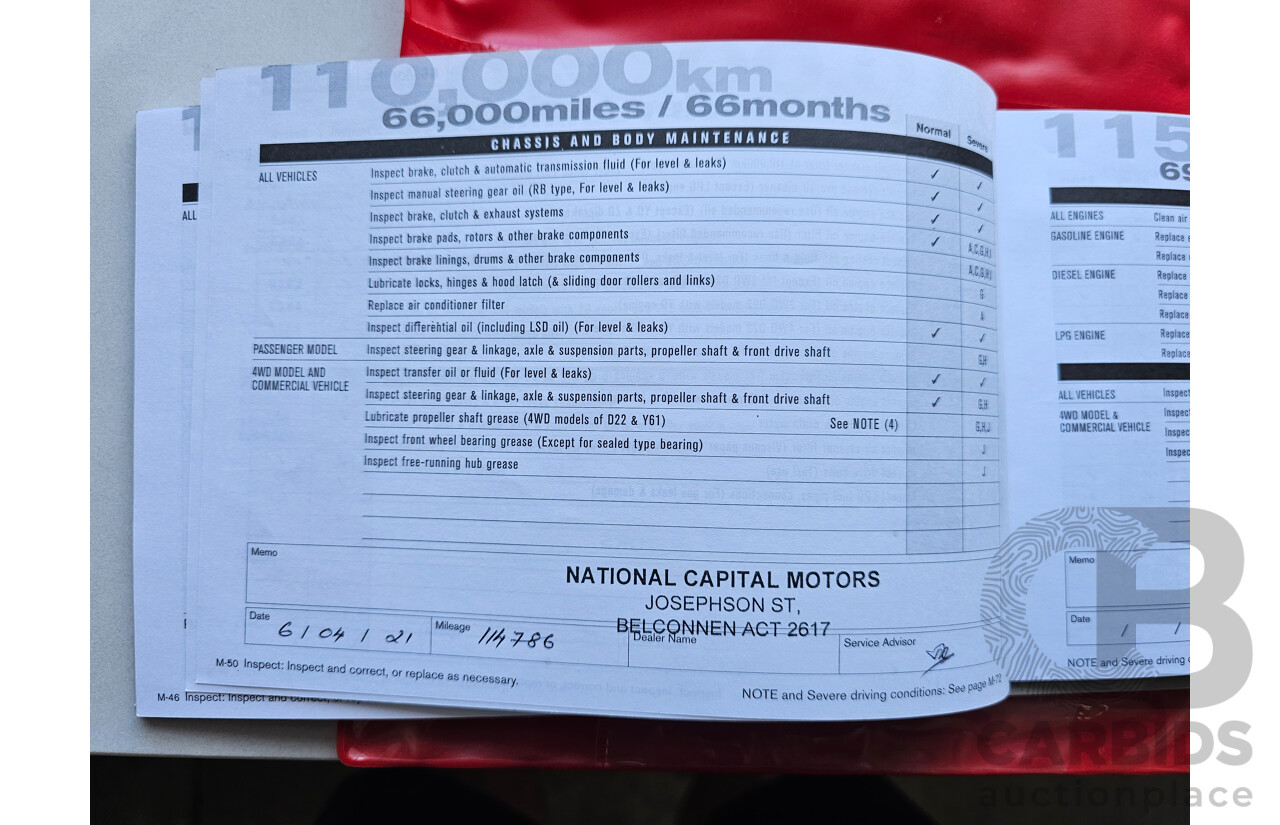 110,000km
66,000miles / 66months
CHASSIS AND BODY MAINTENANCE Normal Severe
ALL VEHICLES Inspect brake, clutch & automatic transmission fluid (For level & leaks) ✓ ✓
Inspect manual steering gear oil (RB type, For level & leaks) ✓ ✓
Inspect brake, clutch & exhaust systems ✓ ✓
Inspect brake pads, rotors & other brake components ✓ A,C,G,H,I
Inspect brake linings, drums & other brake components A,C,G,H,I
Lubricate locks, hinges & hood latch (& sliding door rollers and links) G
Replace air conditioner filter A
Inspect differential oil (including LSD oil) (For level & leaks) ✓ ✓
PASSENGER MODEL Inspect steering gear & linkage, axle & suspension parts, propeller shaft & front drive shaft G,H
4WD MODEL AND Inspect transfer oil or fluid (For level & leaks) ✓ ✓
COMMERCIAL VEHICLE Inspect steering gear & linkage, axle & suspension parts, propeller shaft & front drive shaft ✓ G,H
Lubricate propeller shaft grease (4WD models of D22 & Y61) See NOTE (4) G,H,J
Inspect front wheel bearing grease (Except for sealed type bearing) J
Inspect free-running hub grease J
Memo
NATIONAL CAPITAL MOTORS
JOSEPHSON ST,
BELCONNEN ACT 2617
Date 6 / 04 / 21 Mileage 114786 Dealer Name Service Advisor
M-50 Inspect: Inspect and correct, or replace as necessary.
NOTE and Severe driving conditions: See page M-72
M-46 Inspect: Inspect and
ALL
115
69
ALL ENGINES Clean air
GASOLINE ENGINE Replace
Replace
DIESEL ENGINE Replace
Replace
Replace
LPG ENGINE Replace
Replace
ALL VEHICLES Inspect
4WD MODEL & Inspect
COMMERCIAL VEHICLE Inspec
Inspec
Memo
Date / /
NOTE and Severe driving
CB
CARBIDS
auctionplace